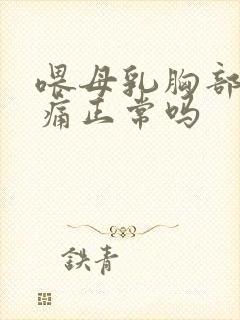 喂母乳胸部
痛正常吗
鉄青